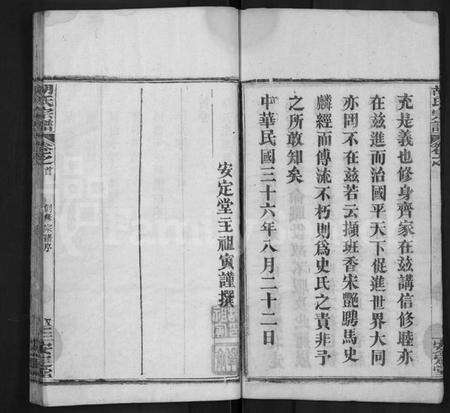 充是義也修身齊家在兹講信修睦亦
在兹進而治國平天下促進世界大同
亦罔不在兹若云擷班香宋艷騁馬史
麟經而傳流不朽則爲史氏之責非予
之所敢知矣
中華民國三十六年八月二十二日
安定堂王祖寅謹撰
胡氏宗譜
卷之首
安定堂